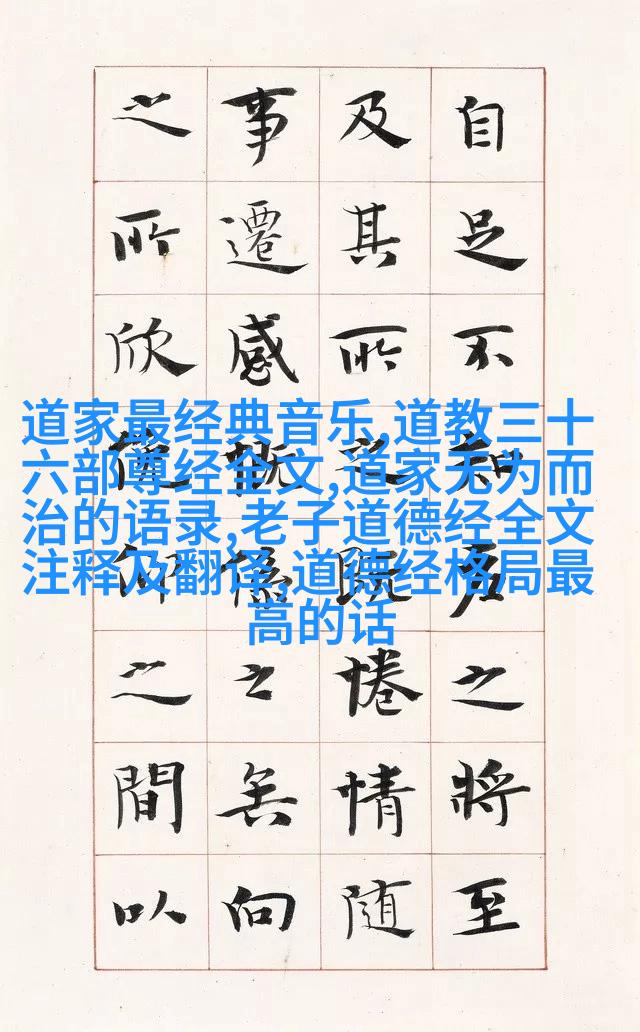 自足不知老之將至
及其所之既惓情隨
事遷感慨係之矣向
之所欣俛仰之間以
道家最经典音乐,道教三十
六部尊经全文,道家无为而
治的语录,老子道德经全文
注释及翻译,道德经格局最
高的话